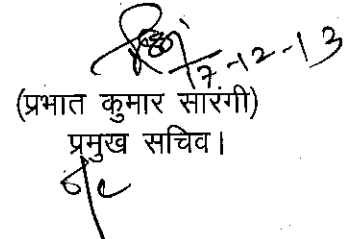 17-12-13
(प्रभात कुमार सारंगी)
प्रमुख सचिव।